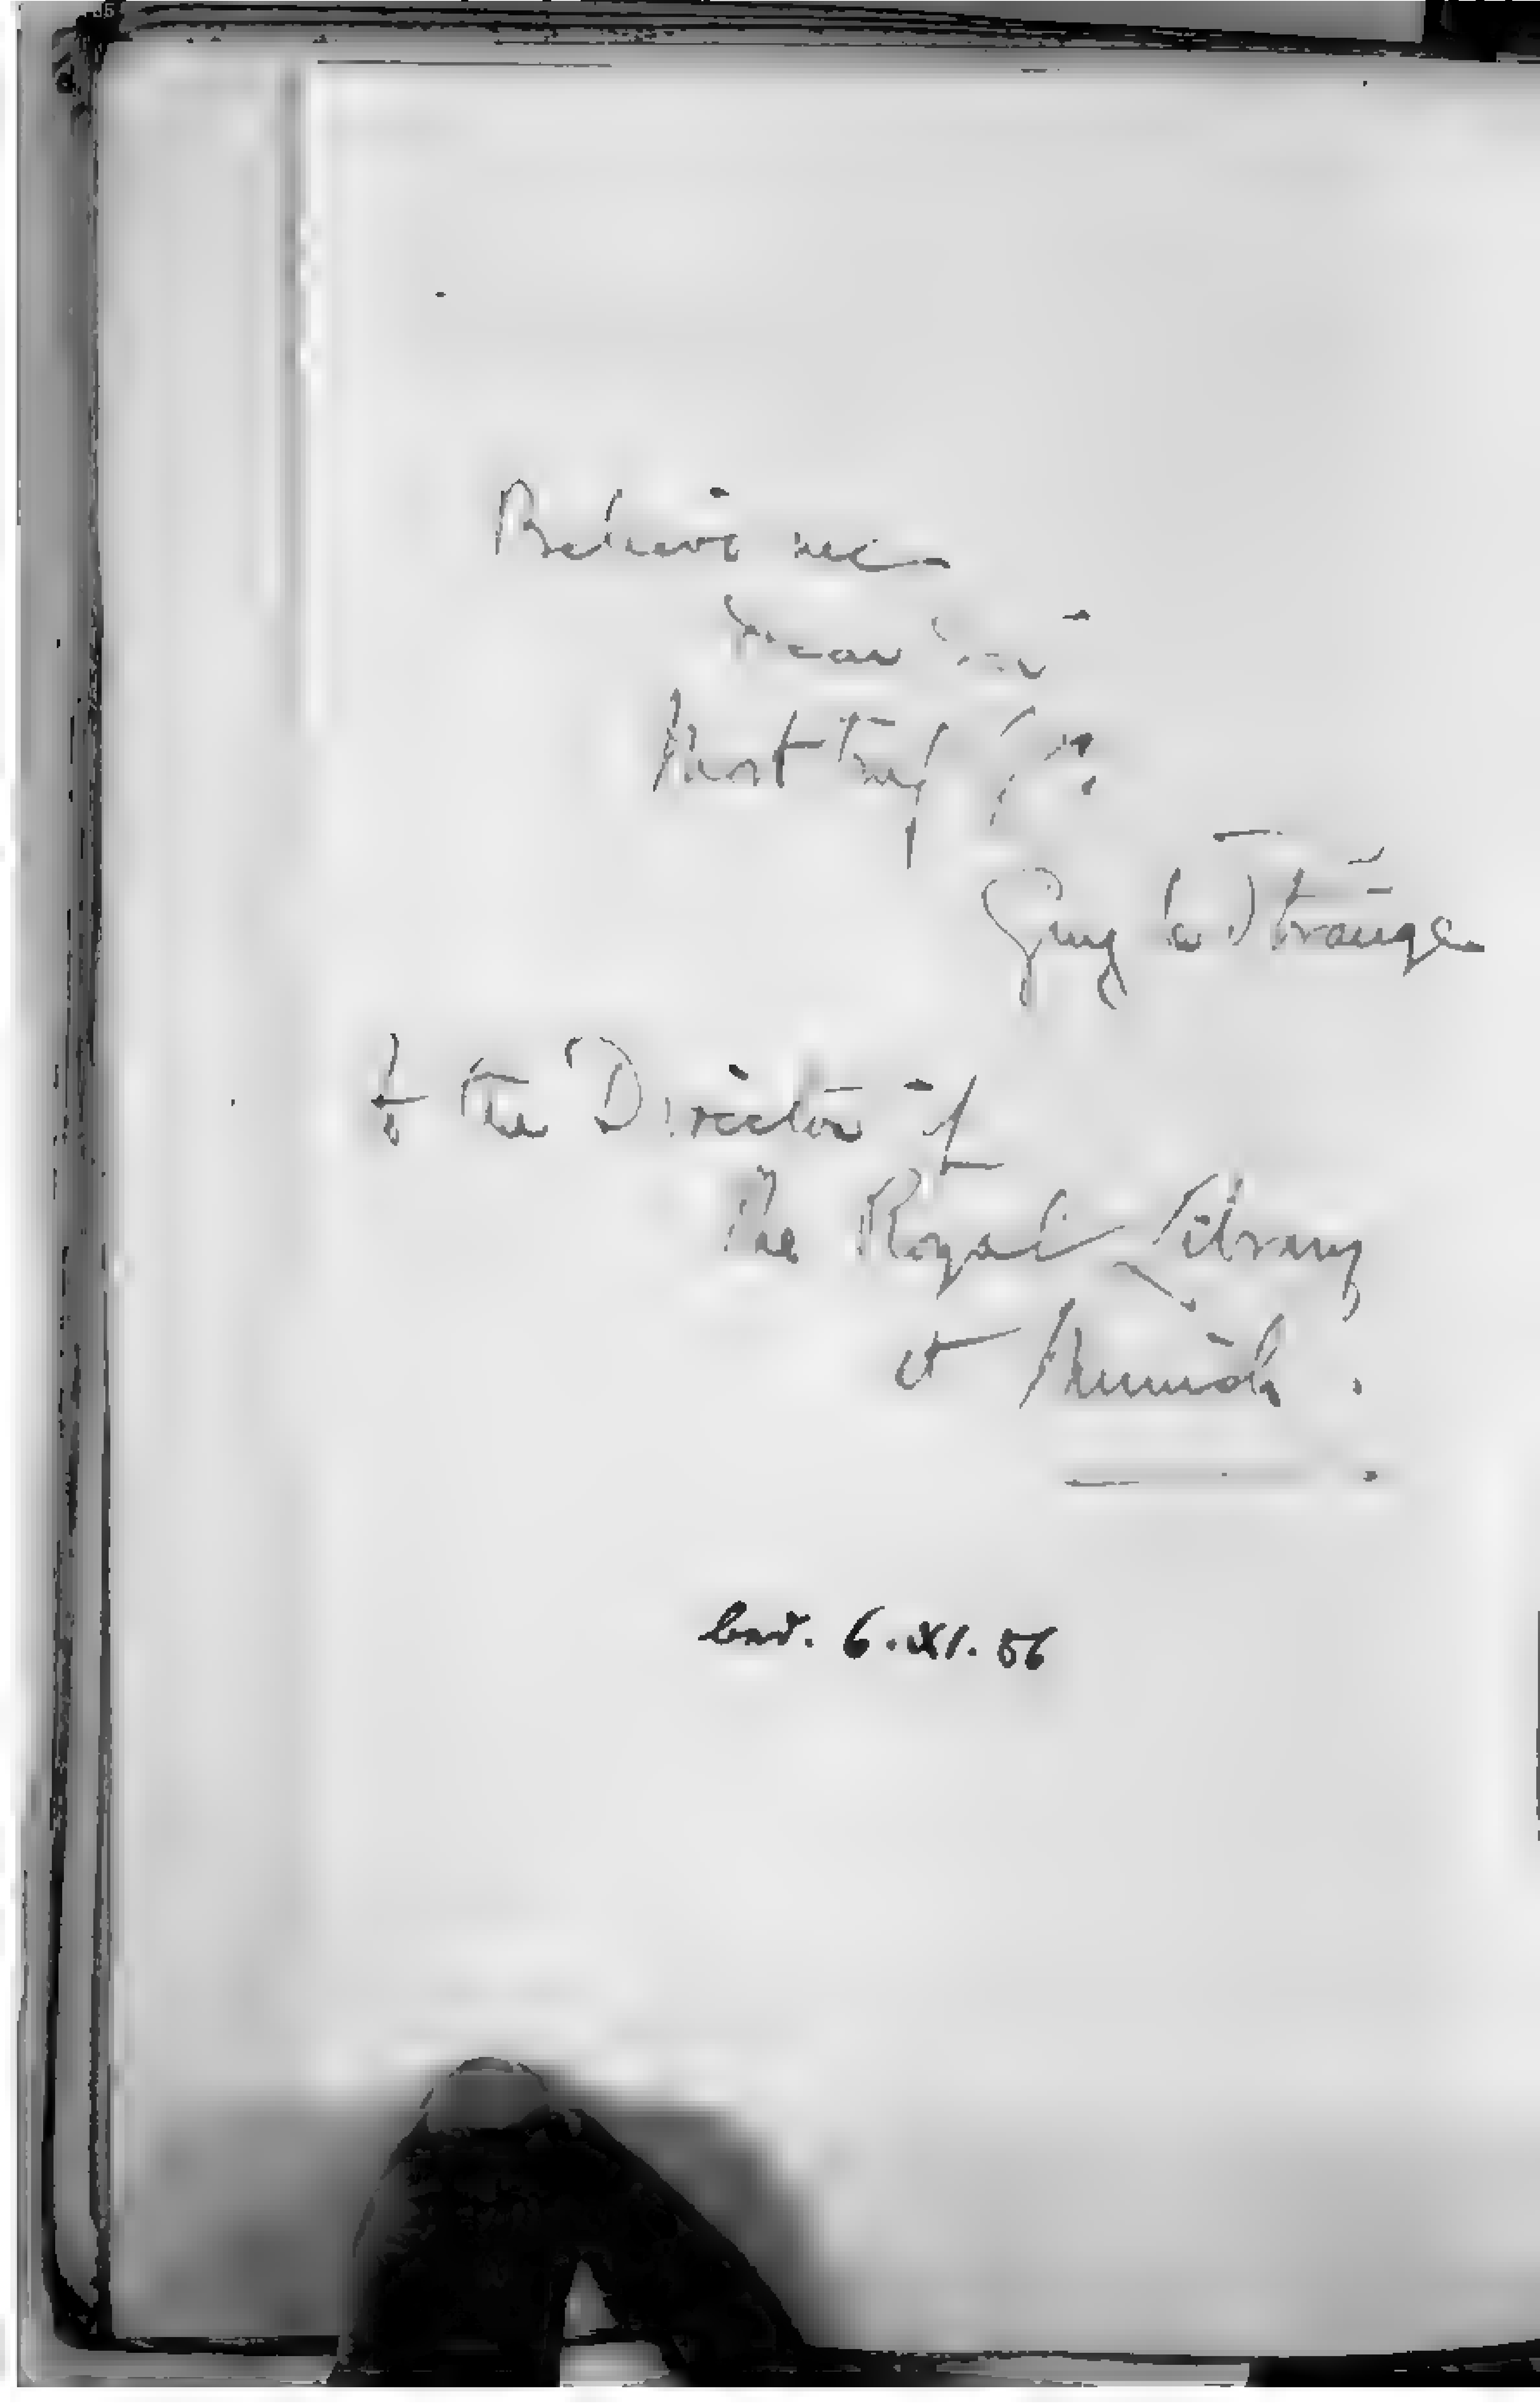 Believe me
Dear Sir
Most truly Yrs.
Guy le Strange
to the Director of
The Royal Library
at Munich.
6.XI.56